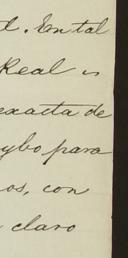 l. En tal
Real
exacta de
ybo para
os, con
claro